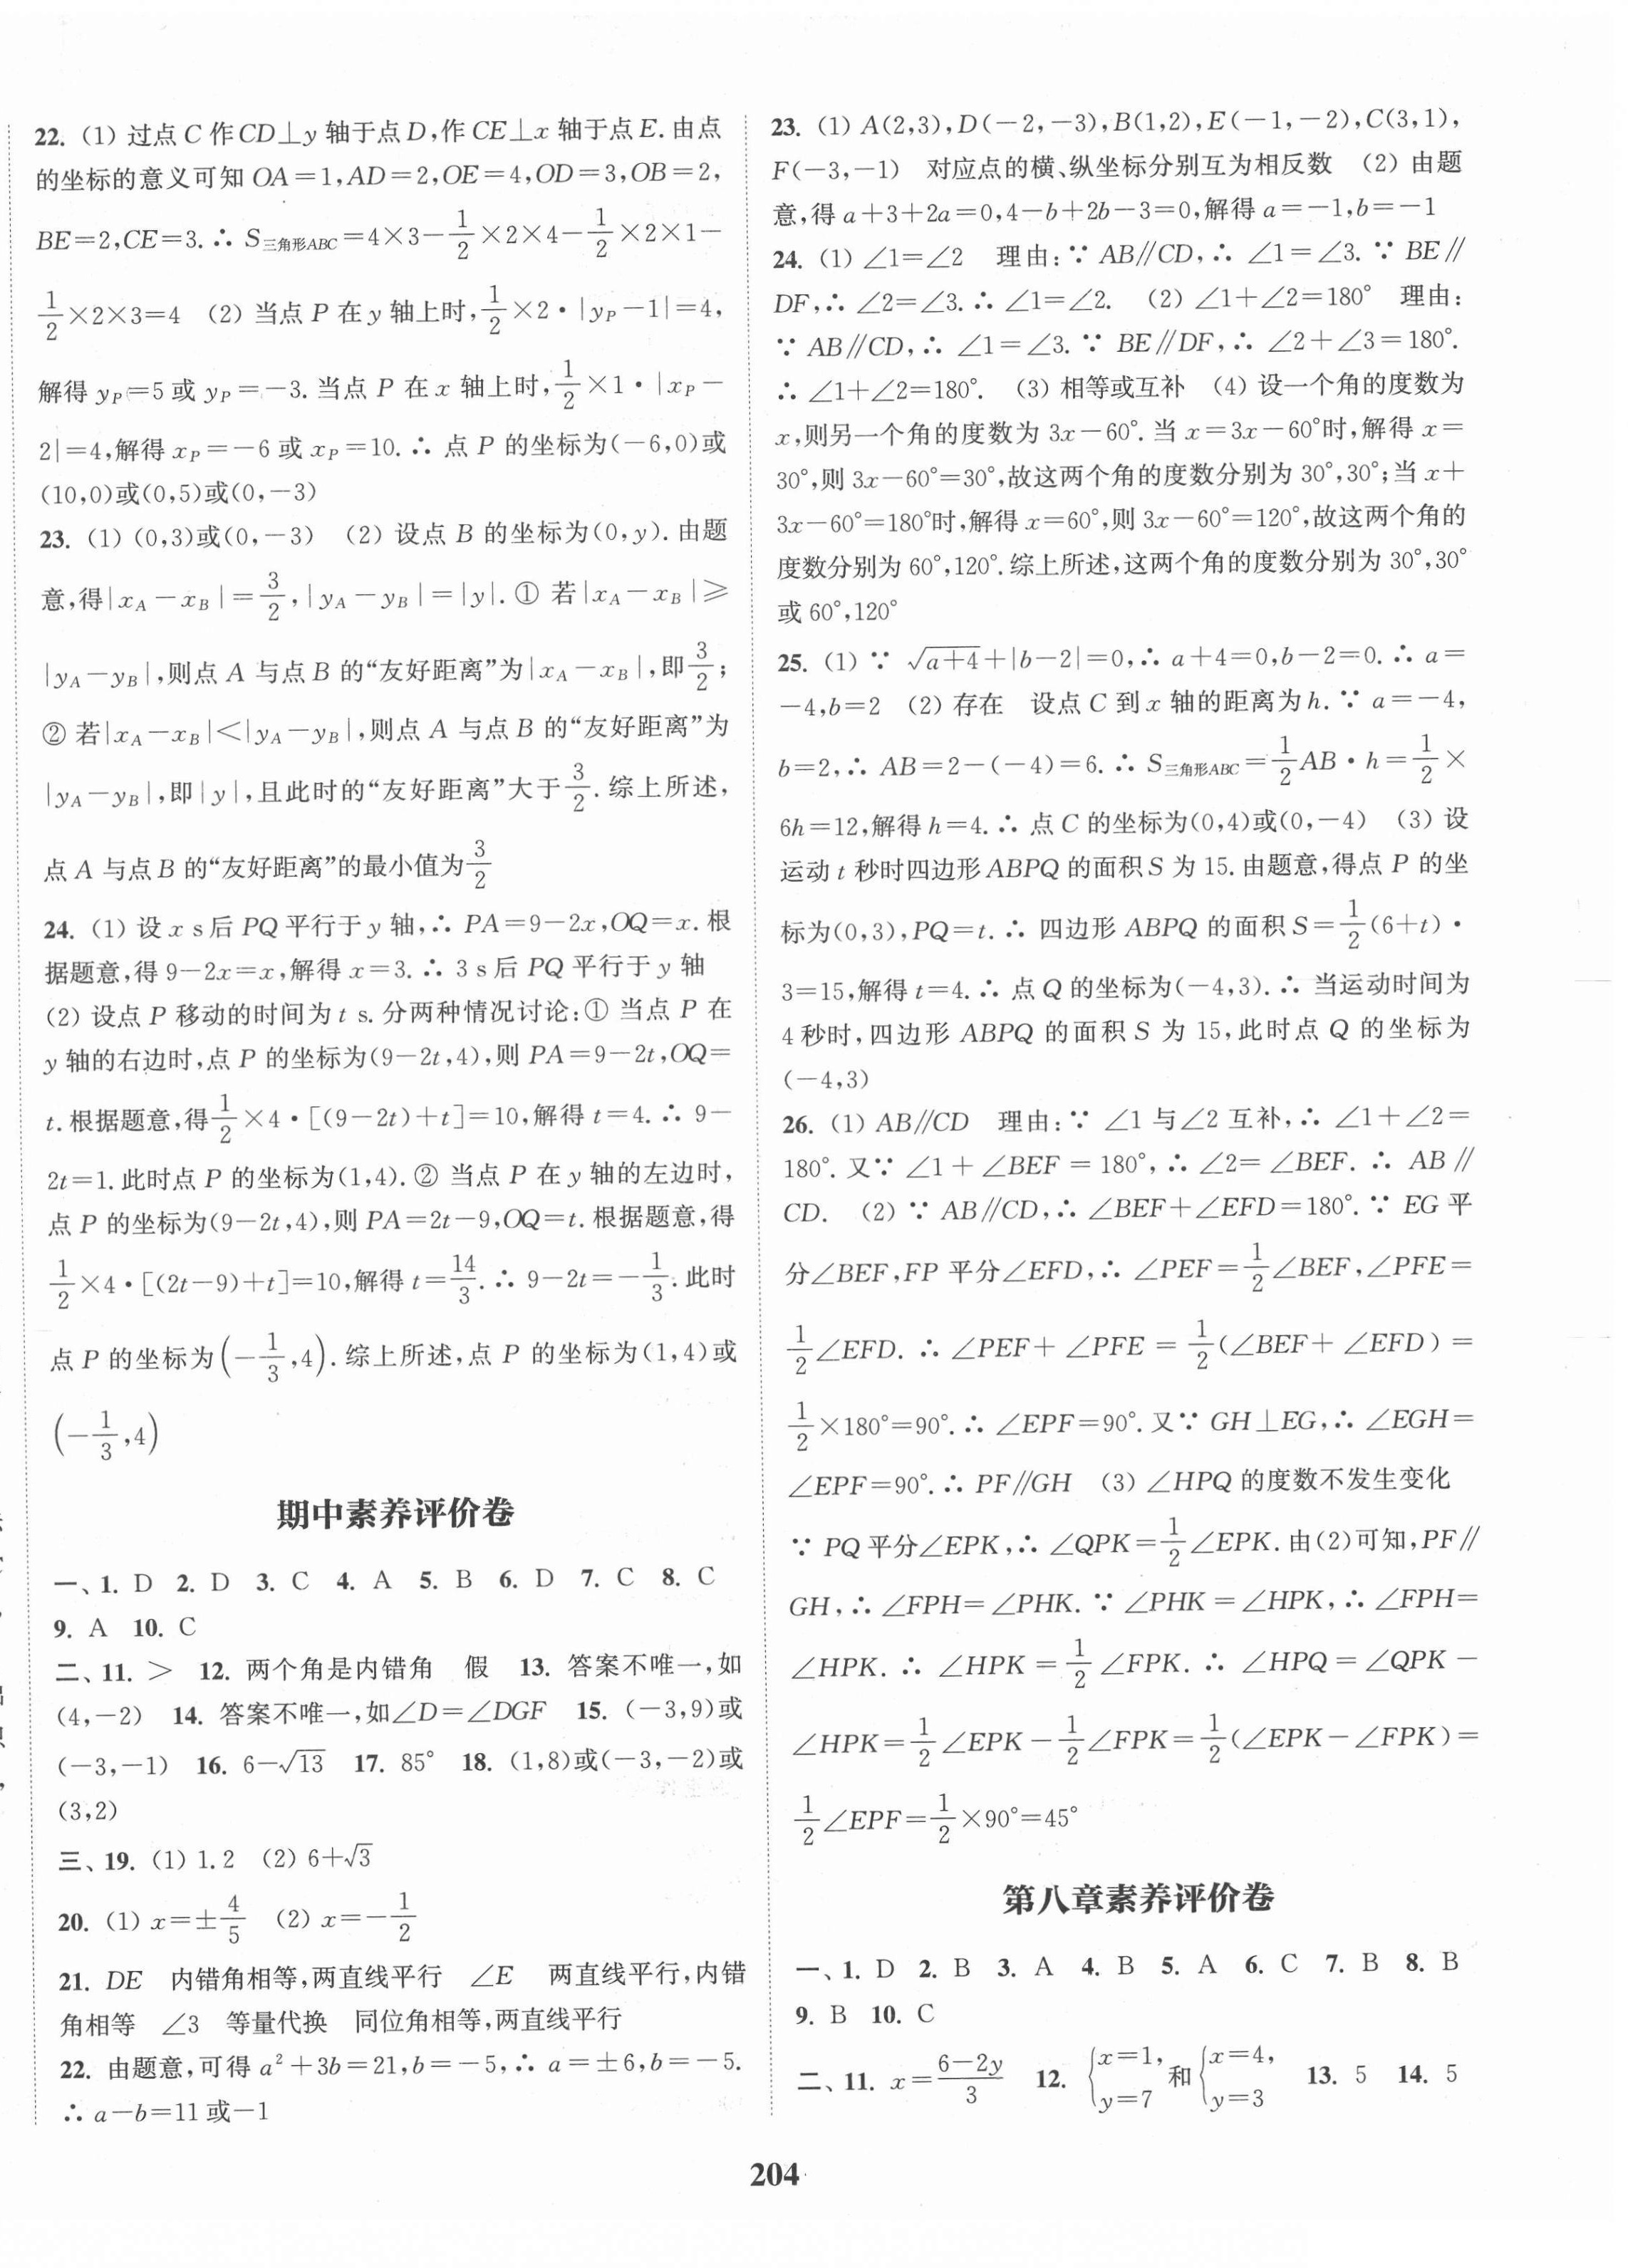 22. (1) 过点 C 作 CD⊥y 轴于点 D,作 CE⊥x 轴于点 E. 由点
的坐标的意义可知 OA=1,AD=2,OE=4,OD=3,OB=2,
BE=2,CE=3. ∴ S三角形ABC=4×3-1/2×2×4-1/2×2×1-
1/2×2×3=4 (2) 当点 P 在 y 轴上时,1/2×2·|yP-1|=4,
解得 yP=5 或 yP=-3. 当点 P 在 x 轴上时,1/2×1·|xP-
2|=4,解得 xP=-6 或 xP=10. ∴ 点 P 的坐标为(-6,0)或
(10,0)或(0,5)或(0,-3)
23. (1) (0,3)或(0,-3) (2) 设点 B 的坐标为(0,y). 由题
意,得|xA-xB|=3/2,|yA-yB|=|y|. ① 若|xA-xB|≥
|yA-yB|,则点 A 与点 B 的“友好距离”为|xA-xB|,即3/2;
② 若|xA-xB|<|yA-yB|,则点 A 与点 B 的“友好距离”为
|yA-yB|,即|y|,且此时的“友好距离”大于3/2. 综上所述,
点 A 与点 B 的“友好距离”的最小值为3/2
24. (1) 设 x s 后 PQ 平行于 y 轴,∴ PA=9-2x,OQ=x. 根
据题意,得 9-2x=x,解得 x=3. ∴ 3 s 后 PQ 平行于 y 轴
(2) 设点 P 移动的时间为 t s. 分两种情况讨论:① 当点 P 在
y 轴的右边时,点 P 的坐标为(9-2t,4),则 PA=9-2t,OQ=
t. 根据题意,得1/2×4·[(9-2t)+t]=10,解得 t=4. ∴ 9-
2t=1. 此时点 P 的坐标为(1,4). ② 当点 P 在 y 轴的左边时,
点 P 的坐标为(9-2t,4),则 PA=2t-9,OQ=t. 根据题意,得
1/2×4·[(2t-9)+t]=10,解得 t=14/3. ∴ 9-2t=-1/3. 此时
点 P 的坐标为(-1/3,4). 综上所述,点 P 的坐标为(1,4)或
(-1/3,4)
期中素养评价卷
一、1. D 2. D 3. C 4. A 5. B 6. D 7. C 8. C
9. A 10. C
二、11. > 12. 两个角是内错角 假 13. 答案不唯一,如
(4,-2) 14. 答案不唯一,如∠D=∠DGF 15. (-3,9)或
(-3,-1) 16. 6-√13 17. 85° 18. (1,8)或(-3,-2)或
(3,2)
三、19. (1) 1.2 (2) 6+√3
20. (1) x=±4/5 (2) x=-1/2
21. DE 内错角相等,两直线平行 ∠E 两直线平行,内错
角相等 ∠3 等量代换 同位角相等,两直线平行
22. 由题意,可得 a²+3b=21,b=-5,∴ a=±6,b=-5.
∴ a-b=11 或-1
23. (1) A(2,3),D(-2,-3),B(1,2),E(-1,-2),C(3,1),
F(-3,-1) 对应点的横、纵坐标分别互为相反数 (2) 由题
意,得 a+3+2a=0,4-b+2b-3=0,解得 a=-1,b=-1
24. (1) ∠1=∠2 理由:∵ AB∥CD,∴ ∠1=∠3. ∵ BE∥
DF,∴ ∠2=∠3. ∴ ∠1=∠2. (2) ∠1+∠2=180° 理由:
∵ AB∥CD,∴ ∠1=∠3. ∵ BE∥DF,∴ ∠2+∠3=180°.
∴ ∠1+∠2=180°. (3) 相等或互补 (4) 设一个角的度数为
x,则另一个角的度数为 3x-60°. 当 x=3x-60°时,解得 x=
30°,则 3x-60°=30°,故这两个角的度数分别为 30°,30°;当 x+
3x-60°=180°时,解得 x=60°,则 3x-60°=120°,故这两个角的
度数分别为 60°,120°. 综上所述,这两个角的度数分别为 30°,30°
或 60°,120°
25. (1) ∵ √(a+4)+|b-2|=0,∴ a+4=0,b-2=0. ∴ a=
-4,b=2 (2) 存在 设点 C 到 x 轴的距离为 h. ∵ a=-4,
b=2,∴ AB=2-(-4)=6. ∴ S三角形ABC=1/2AB·h=1/2×
6h=12,解得 h=4. ∴ 点 C 的坐标为(0,4)或(0,-4) (3) 设
运动 t 秒时四边形 ABPQ 的面积 S 为 15. 由题意,得点 P 的坐
标为(0,3),PQ=t. ∴ 四边形 ABPQ 的面积 S=1/2(6+t)·
3=15,解得 t=4. ∴ 点 Q 的坐标为(-4,3). ∴ 当运动时间为
4 秒时,四边形 ABPQ 的面积 S 为 15,此时点 Q 的坐标为
(-4,3)
26. (1) AB∥CD 理由:∵ ∠1 与∠2 互补,∴ ∠1+∠2=
180°. 又∵ ∠1+∠BEF=180°,∴ ∠2=∠BEF. ∴ AB∥
CD. (2) ∵ AB∥CD,∴ ∠BEF+∠EFD=180°. ∵ EG 平
分∠BEF,FP 平分∠EFD,∴ ∠PEF=1/2∠BEF,∠PFE=
1/2∠EFD. ∴ ∠PEF+∠PFE=1/2(∠BEF+∠EFD)=
1/2×180°=90°. ∴ ∠EPF=90°. 又∵ GH⊥EG,∴ ∠EGH=
∠EPF=90°. ∴ PF∥GH (3) ∠HPQ 的度数不发生变化
∵ PQ 平分∠EPK,∴ ∠QPK=1/2∠EPK. 由(2)可知,PF∥
GH,∴ ∠FPH=∠PHK. ∵ ∠PHK=∠HPK,∴ ∠FPH=
∠HPK. ∴ ∠HPK=1/2∠FPK. ∴ ∠HPQ=∠QPK-
∠HPK=1/2∠EPK-1/2∠FPK=1/2(∠EPK-∠FPK)=
1/2∠EPF=1/2×90°=45°
第八章素养评价卷
一、1. D 2. B 3. A 4. B 5. A 6. C 7. B 8. B
9. B 10. C
二、11. x=(6-2y)/3 12. {x=1, y=7 和 {x=4, y=3 13. 5 14. 5
204